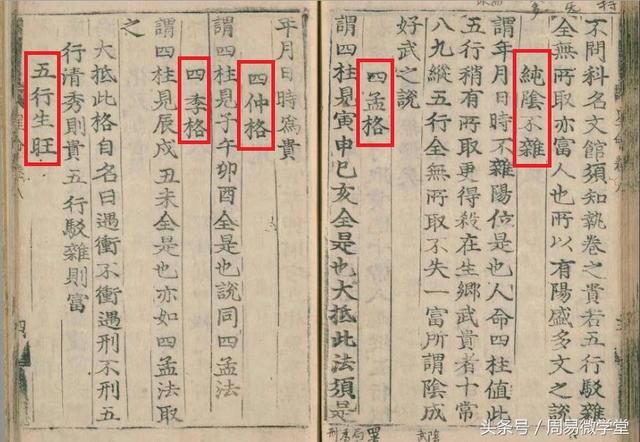 不問科名文館須知執卷之貴若五行駁雜
全無所取亦富人也所以有陽盛多文之說
純陰不雜
謂年月日時不雜陽位是也人命四柱值此
五行稍有所取更得殺在生鄉武貴者十常
八九縱五行全無所取不失一富所謂陰成
好武之說
四孟格
謂四柱見寅申巳亥全是也大抵此法須是
年月日時寫貴
四仲格
謂四柱見子午卯酉全是也說同四孟法
四季格
謂四柱見辰戌丑未全是也亦如四孟法取
之
大抵此格自名曰遇衝不衝遇刑不刑五
行清秀則貴五行駁雜則富
五行生旺
四
頭条号 / 周易微学堂